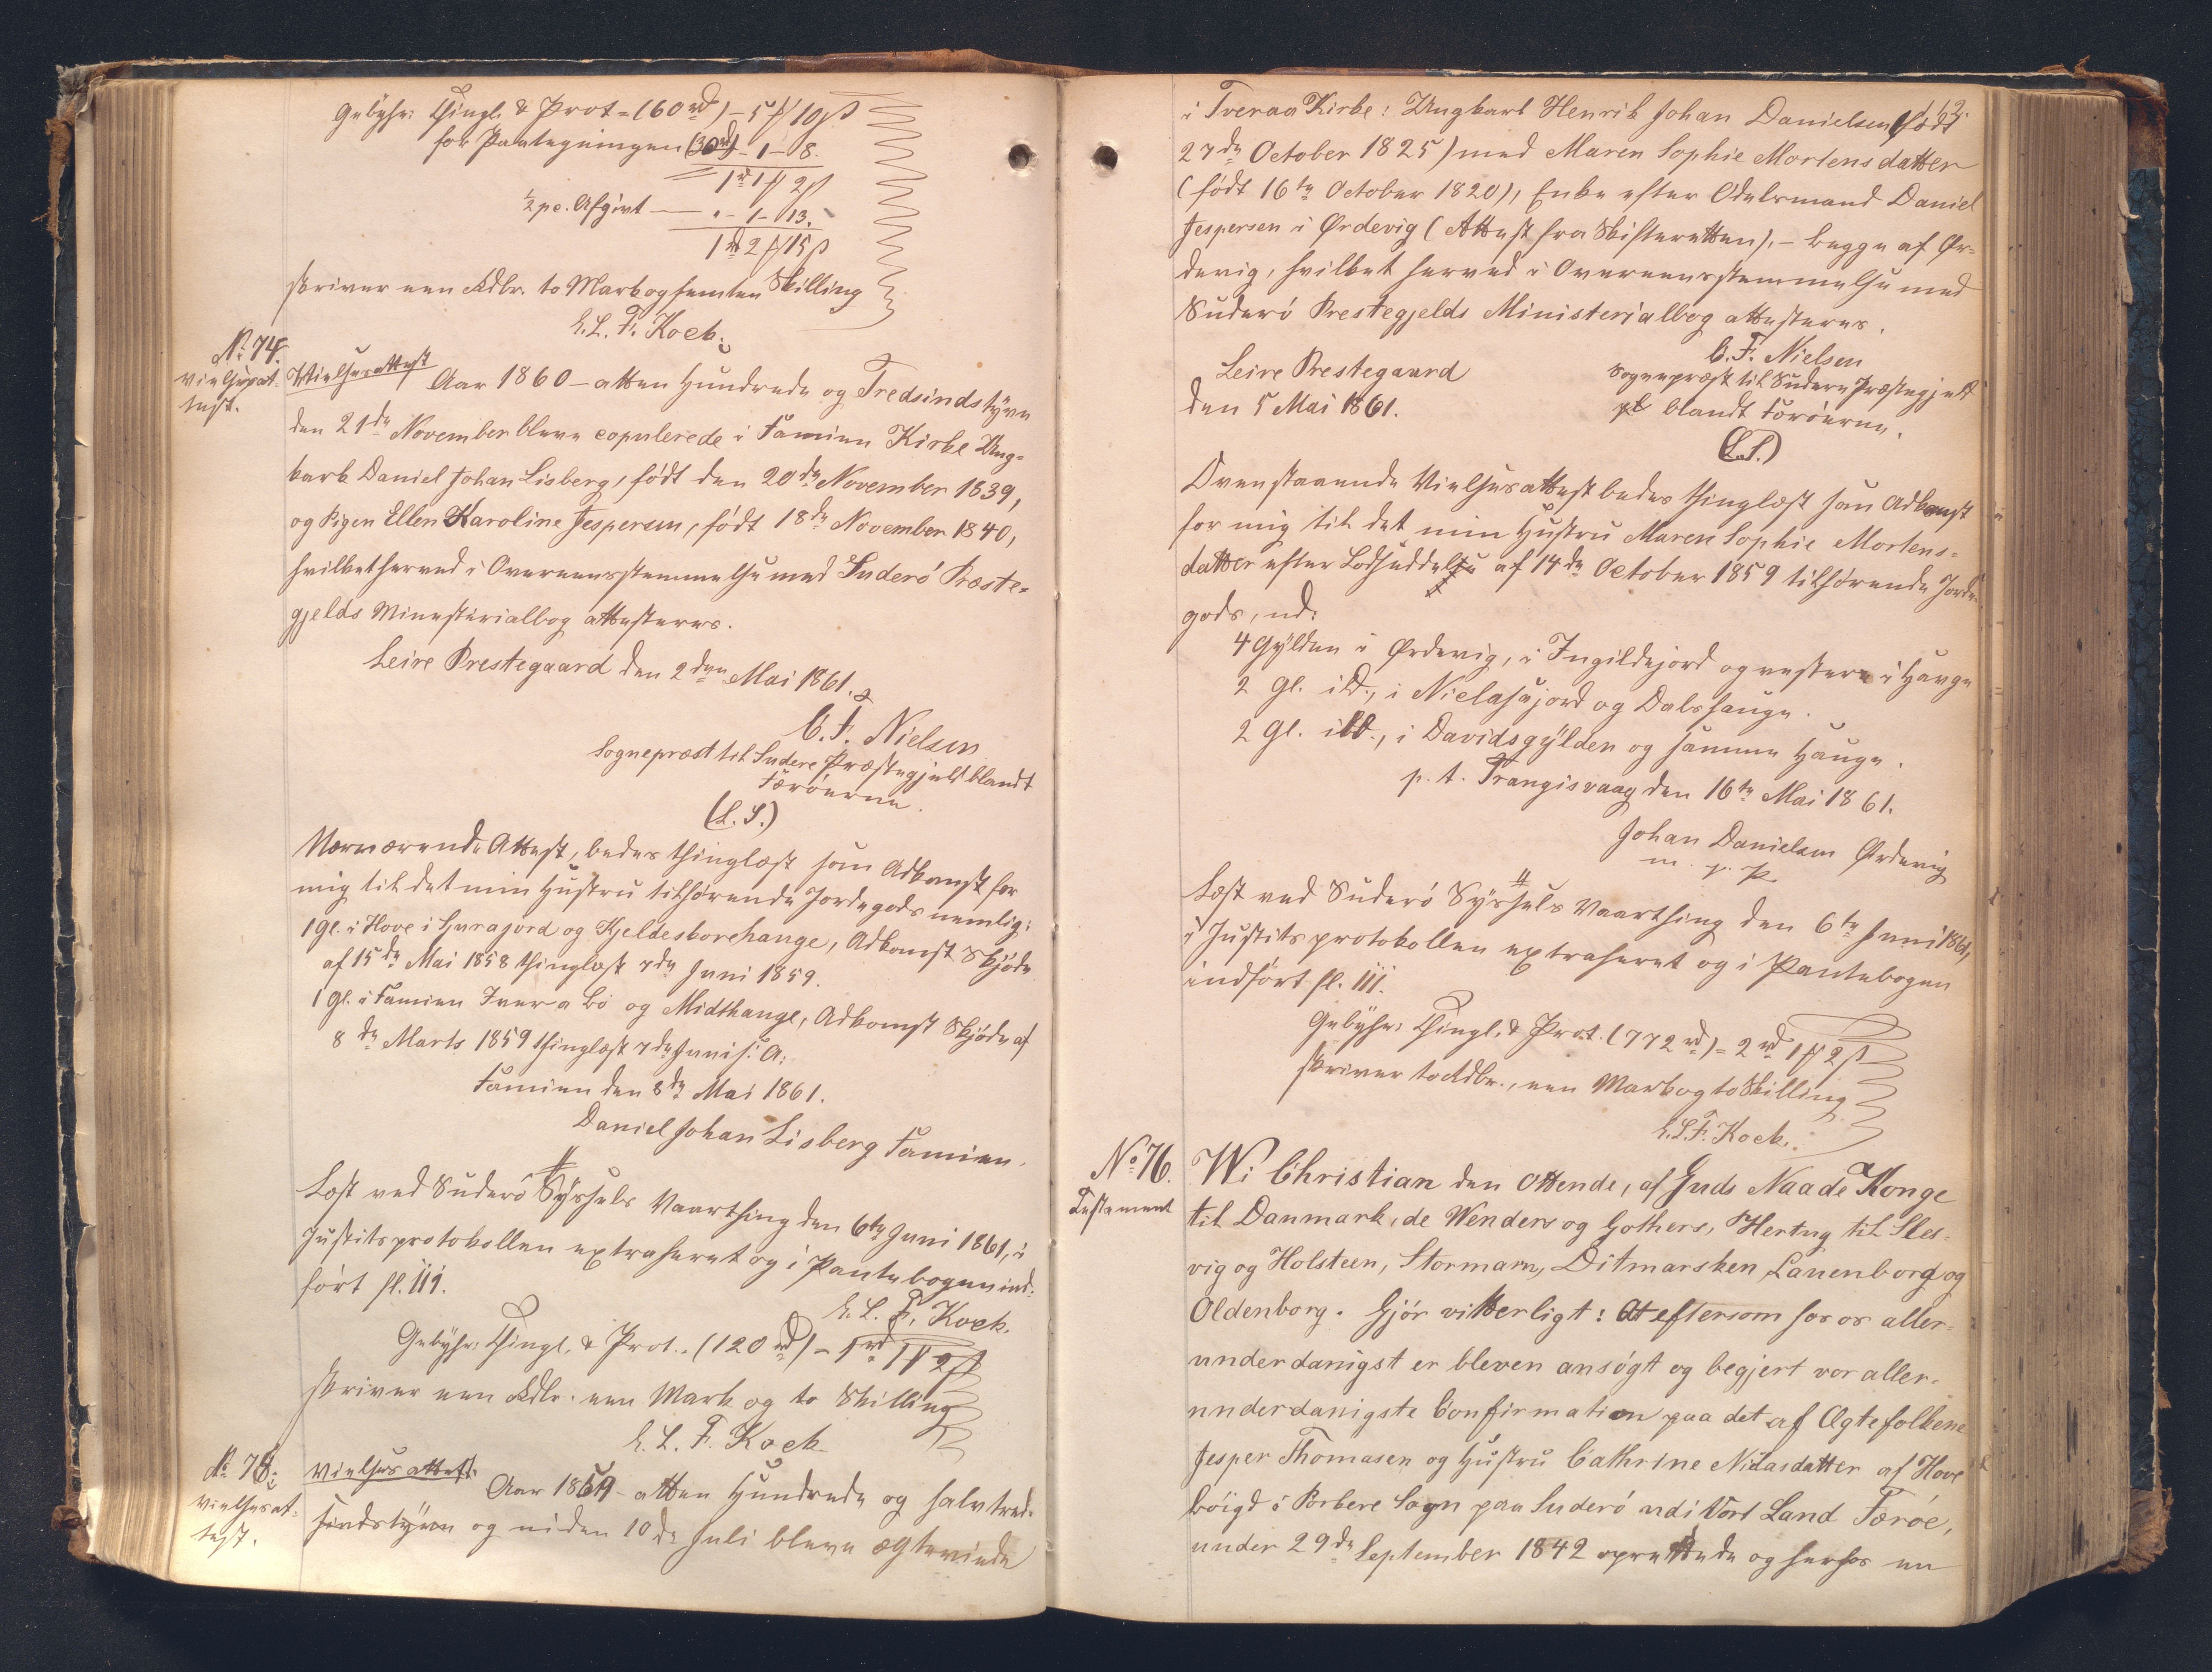 Gebyhr: Thingl. & Prot = (60 rd) - 5 ß 10 ß
for Paategningen (30 rd) - 1 - 8.
1 rd 1 ß 2 ß
½ pc. Afgivt — „ - 1 - 13.
1 rd 2 ß 15 ß
skriver een Rdlr. to Mark og femten Skilling
E. L. F. Koch.
No 74.
Vielsesat-
test.
Vielsesattest
Aar 1860 - atten Hundrede og Tredsindstyve
den 21de November bleve copulerede i Famien Kirke Ung-
karl Daniel Johan Lisberg, født den 20de November 1839,
og Pigen Ellen Karoline Jespersen, født 18de November 1840,
hvilket herved i Overeensstemmelse med Suderö Præste-
gjelds Minesterialbog attesteres.
Leire Prestegaard den 2den Mai 1861.
C. F. Nielsen
Sognepræst til Suderø Præstegjeld blandt
Færöerne.
(L. S.)
Nærværende Attest, bedes thinglæst som Adkomst for
mig til det min Hustru tilhørende Jordegods nemlig:
1 gl. i Hove i Hjurajord og Kjeldesborehauge, Adkomst Skjöde
af 15de Mai 1858 thinglæst 7de Juni 1859.
1 gl. i Famien Tvera Bö og Midthauge, Adkomst Skjöde af
8de Marts 1859 thinglæst 7de Juni s. A.
Famien den 8de Mai 1861.
Daniel Johan Lisberg Famien.
Læst ved Suderö Syssels Vaarthing den 6te Juni 1861, i
Justitsprotokollen extraheret og i Pantebogen ind-
fört fl. 111.
E. L. F. Koch.
Gebyhr: Thingl. & Prot.. (120 rd) - 1 rd 1 ß 2 ß
skriver een Rdlr. een Mark og to Skilling
E. L. F. Koch
No 75.
Vielsesat-
test.
Vielsesattest.
Aar 1859 - atten Hundrede og halvtred-
sindstyve og ni den 10de Juli bleve ægteviede
62.
i Tveraa Kirke: Ungkarl Henrik Johan Danielsen (født
27de October 1825) med Maren Sophie Mortensdatter
(født 16te October 1820), Enke efter Odelsmand Daniel
Jespersen i Ørdevig (Attest fra Skifteretten), - begge af Ør-
devig, hvilket herved i Overeensstemmelse med
Suderö Prestegjelds Ministerialbog attesteres.
C. F. Nielsen
Leire Prestegaard
Sognepræst til Suderø Præstegjeld
den 5 Mai 1861.
blandt Færöerne.
(L. S.)
Ovenstaaende Vielsesattest bedes thinglæst som Adkomst
for mig til det min Hustru Maren Sophie Mortens-
datter efter Lodseddel af 14de October 1859 tilhørende Jorde-
gods, nl.
4 Gylden i Ørdevig, i Ingildejord og vestere i Hauge
2 Gl. ibd., i Nielasajord og Dalshauge.
2 Gl. ibd., i Davidsgylden og samme Hauge.
p. t. Trangisvaag den 16te Mai 1861.
Johan Danielsen Ørdevig
m. p. P.
Læst ved Suderö Syssels Vaarthing den 6te Juni 1861,
i Justitsprotokollen extraheret og i Pantebogen
indfört fl. 111.
Gebyhr: Thingl. & Prot. (772 rd) = 2 rd 1 ß 2 ß
skriver to Rdlr., een Mark og to Skilling
E. L. F. Koch.
No 76.
Testament
Wi Christian den Ottende, af Guds Naade Konge
til Danmark, de Wenders og Gothers, Hertug til Sles-
vig og Holsteen, Stormarn, Ditmarsken Lauenborg og
Oldenborg. Gjör vitterligt: At eftersom hos os aller-
underdanigst er bleven ansögt og begjert vor aller-
underdanigste Confirmation paa det af Ægtefolkene
Jesper Thomasen og Hustru Cathrine Nidasdatter af Hove
böigd i Porkere Sogn paa Suderö udi Vort Land Færöe,
under 29de September 1842 oprettede og herhos en